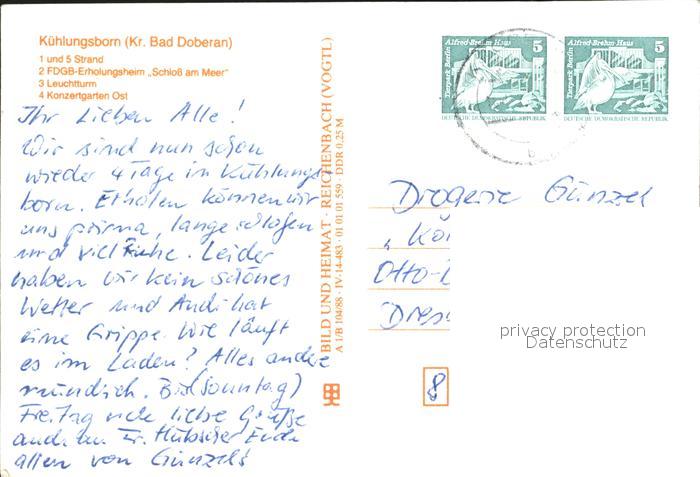 Kühlungsborn (Kr. Bad Doberan)
1 und 5 Strand
2 FDGB-Erholungsheim „Schloß am Meer"
3 Leuchtturm
4 Konzertgarten Ost
Ihr Lieben Alle!
Wir sind nun schon
wieder 4 Tage in Kühlungs-
born. Erholen können wir
uns prima, lange schlafen
und viel Ruhe. Leider
haben wir kein schönes
Wetter und Andi hat
eine Grippe. Wie läuft
es im Laden? Alles andere
mündlich. Bis (Sonntag)
Freitag liebe Grüße
auch an Fr. Hübscher Ende
allen von Günzel's
BILD UND HEIMAT · REICHENBACH (VOGTL)
A 1/B 104/88 · IV-14-483 · 01 01 01 559 · DDR 0,25 M
Tierpark Berlin
Alfred-Brehm-Haus
5
DEUTSCHE DEMOKRATISCHE REPUBLIK
Tierpark Berlin
Alfred-Brehm-Haus
5
DEUTSCHE DEMOKRATISCHE REPUBLIK
b
Drogerie Günzel
Otto-
Dres
8
privacy protection
Datenschutz